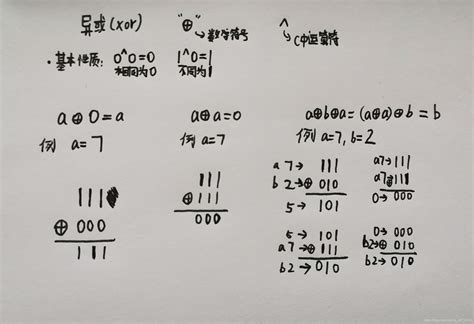 异或(xor) "⊕" ^
→数学符号 →C中运算符
·基本性质: 0^0=0 1^0=1
相同为0 不同为1
a⊕0=a
例 a=7
111
⊕ 000
111
a⊕a=0
例 a=7
111
⊕ 111
000
a⊕b⊕a=(a⊕a)⊕b=b
例 a=7, b=2
a 7→ 111
b 2→⊕ 010
5→ 101
5→ 101
a7→⊕ 111
b2→ 010
a7→111
a7→⊕111
0→000
0→ 000
b2→⊕ 010
b2→010